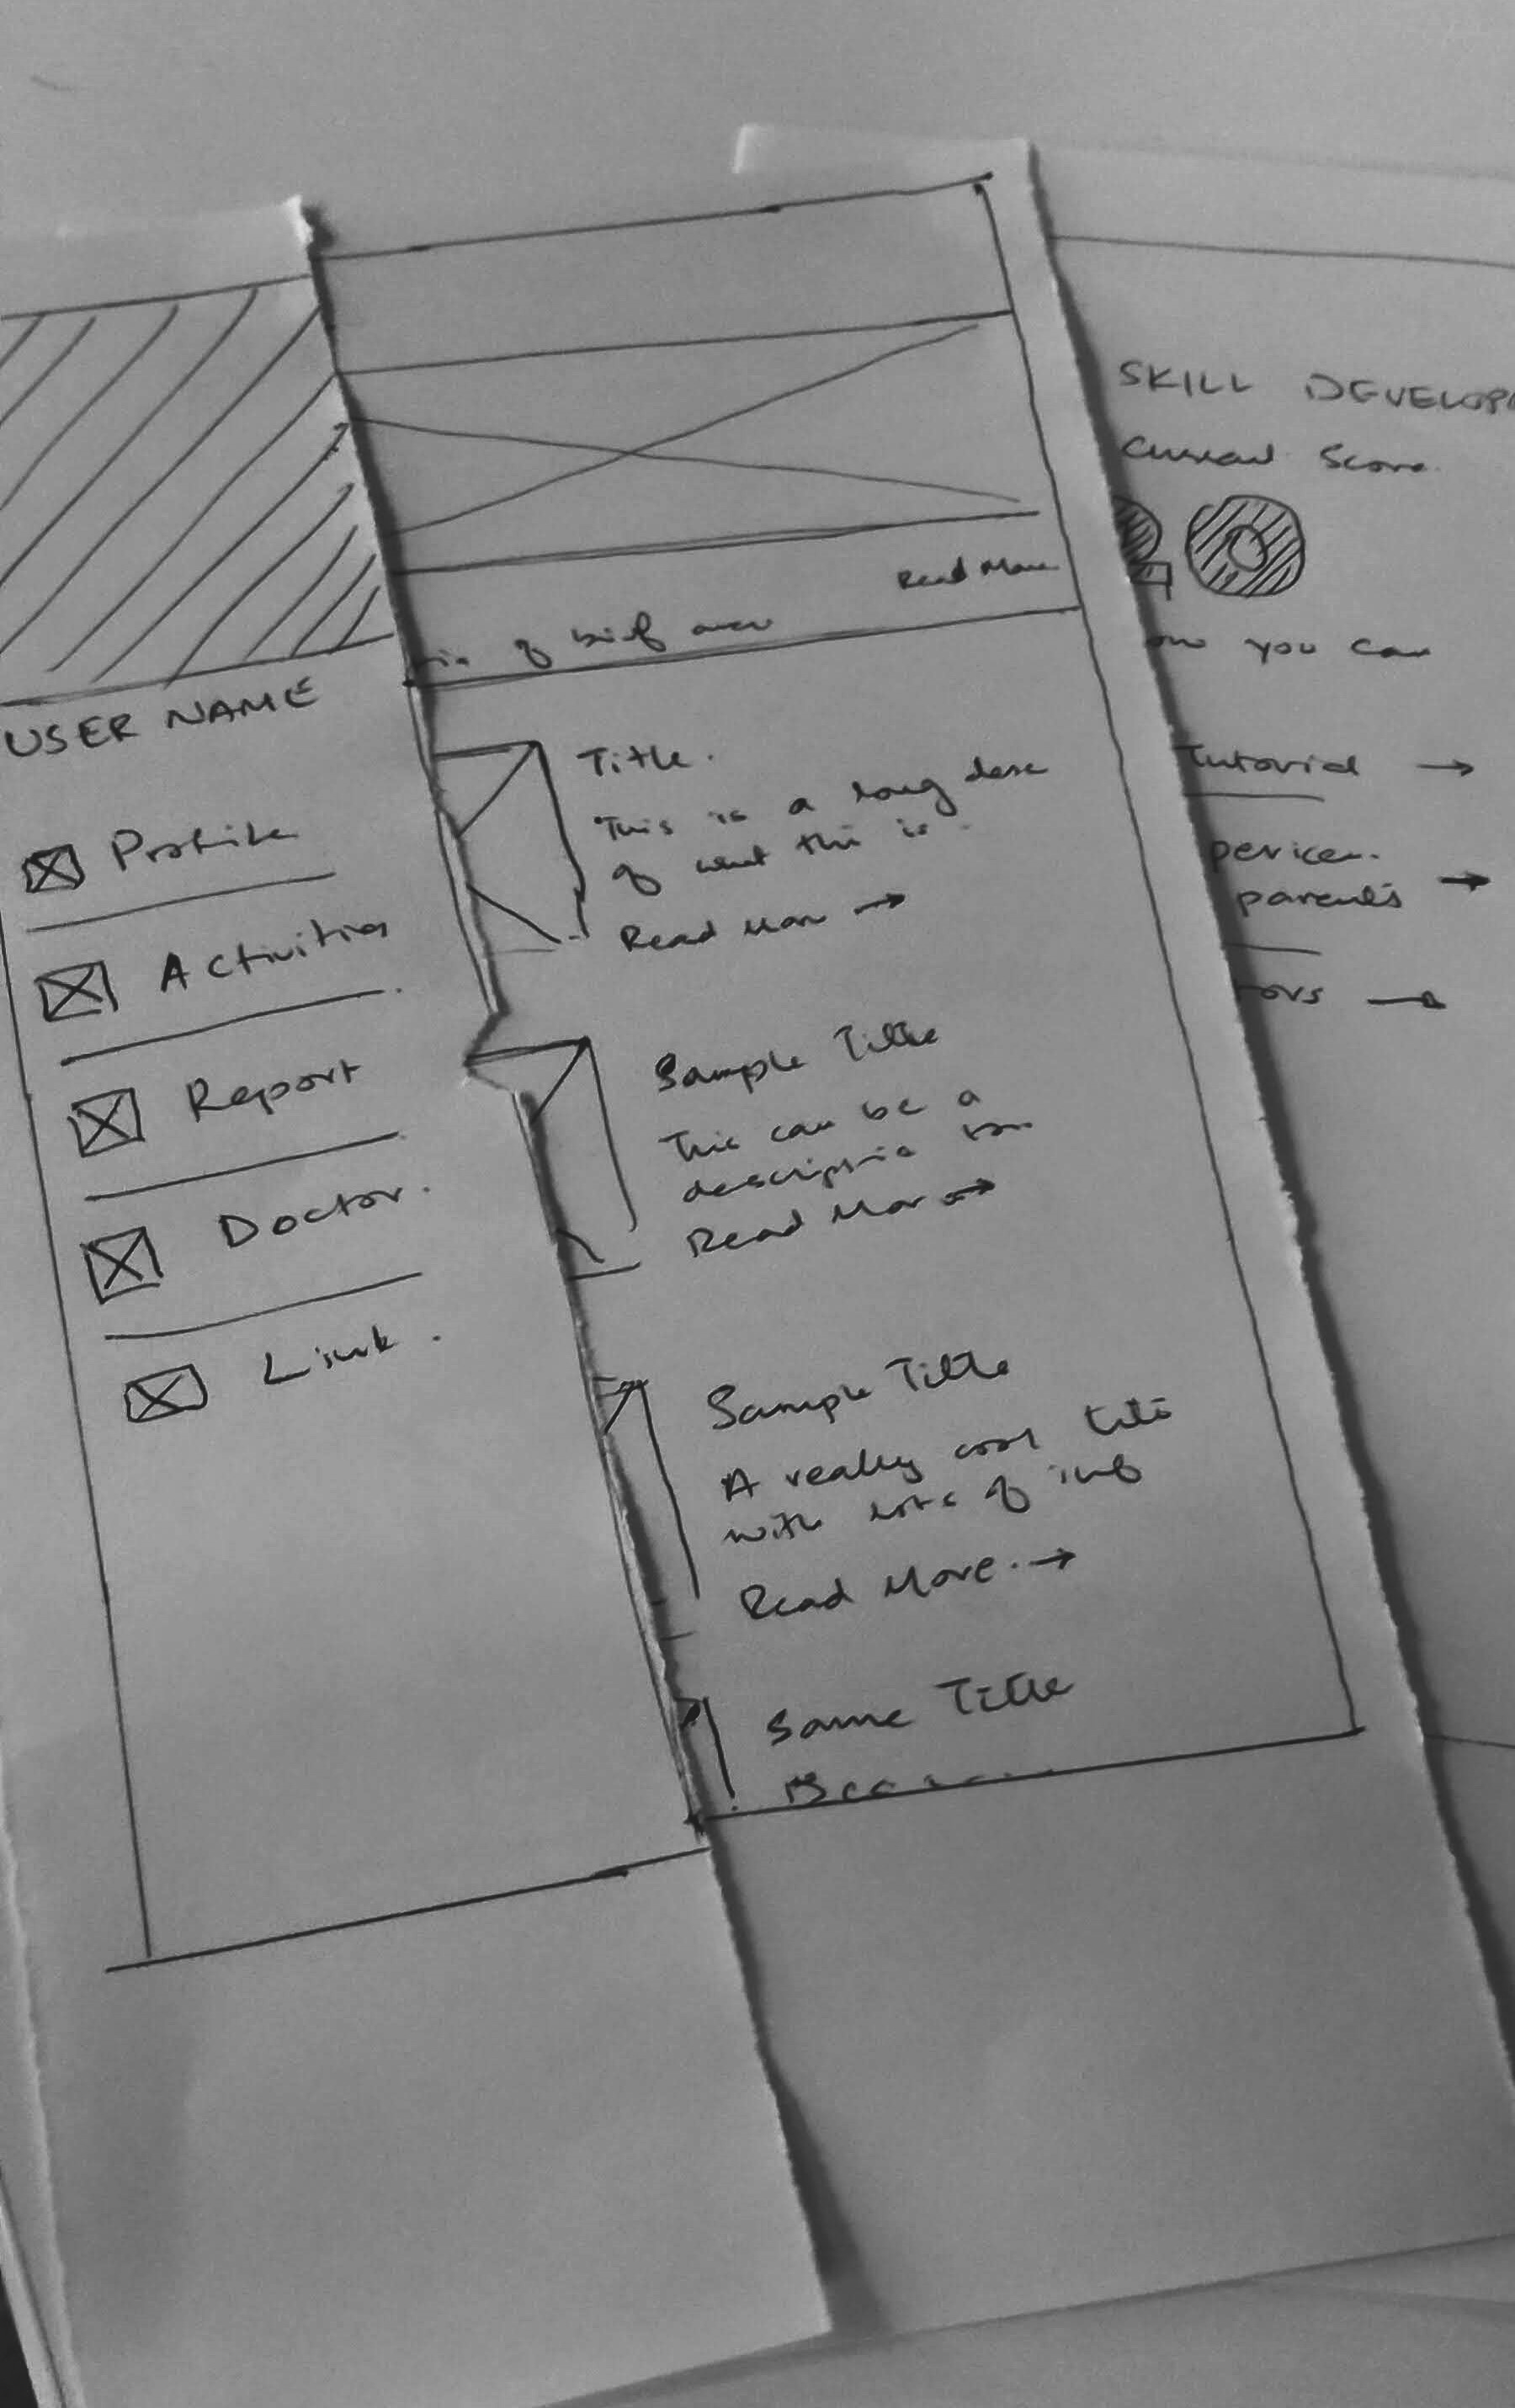 USER NAME
Profile
Activities
Report
Doctor.
Link.
Read More
of brief
Title.
This is a long desc
of what this is.
Read More →
Sample Title
This can be a
Read More →
Sample Title
A really cool
with lots of info
Read More. →
Same Title
SKILL DEVELOP
Current Score
you can
Tutorial →
parents →